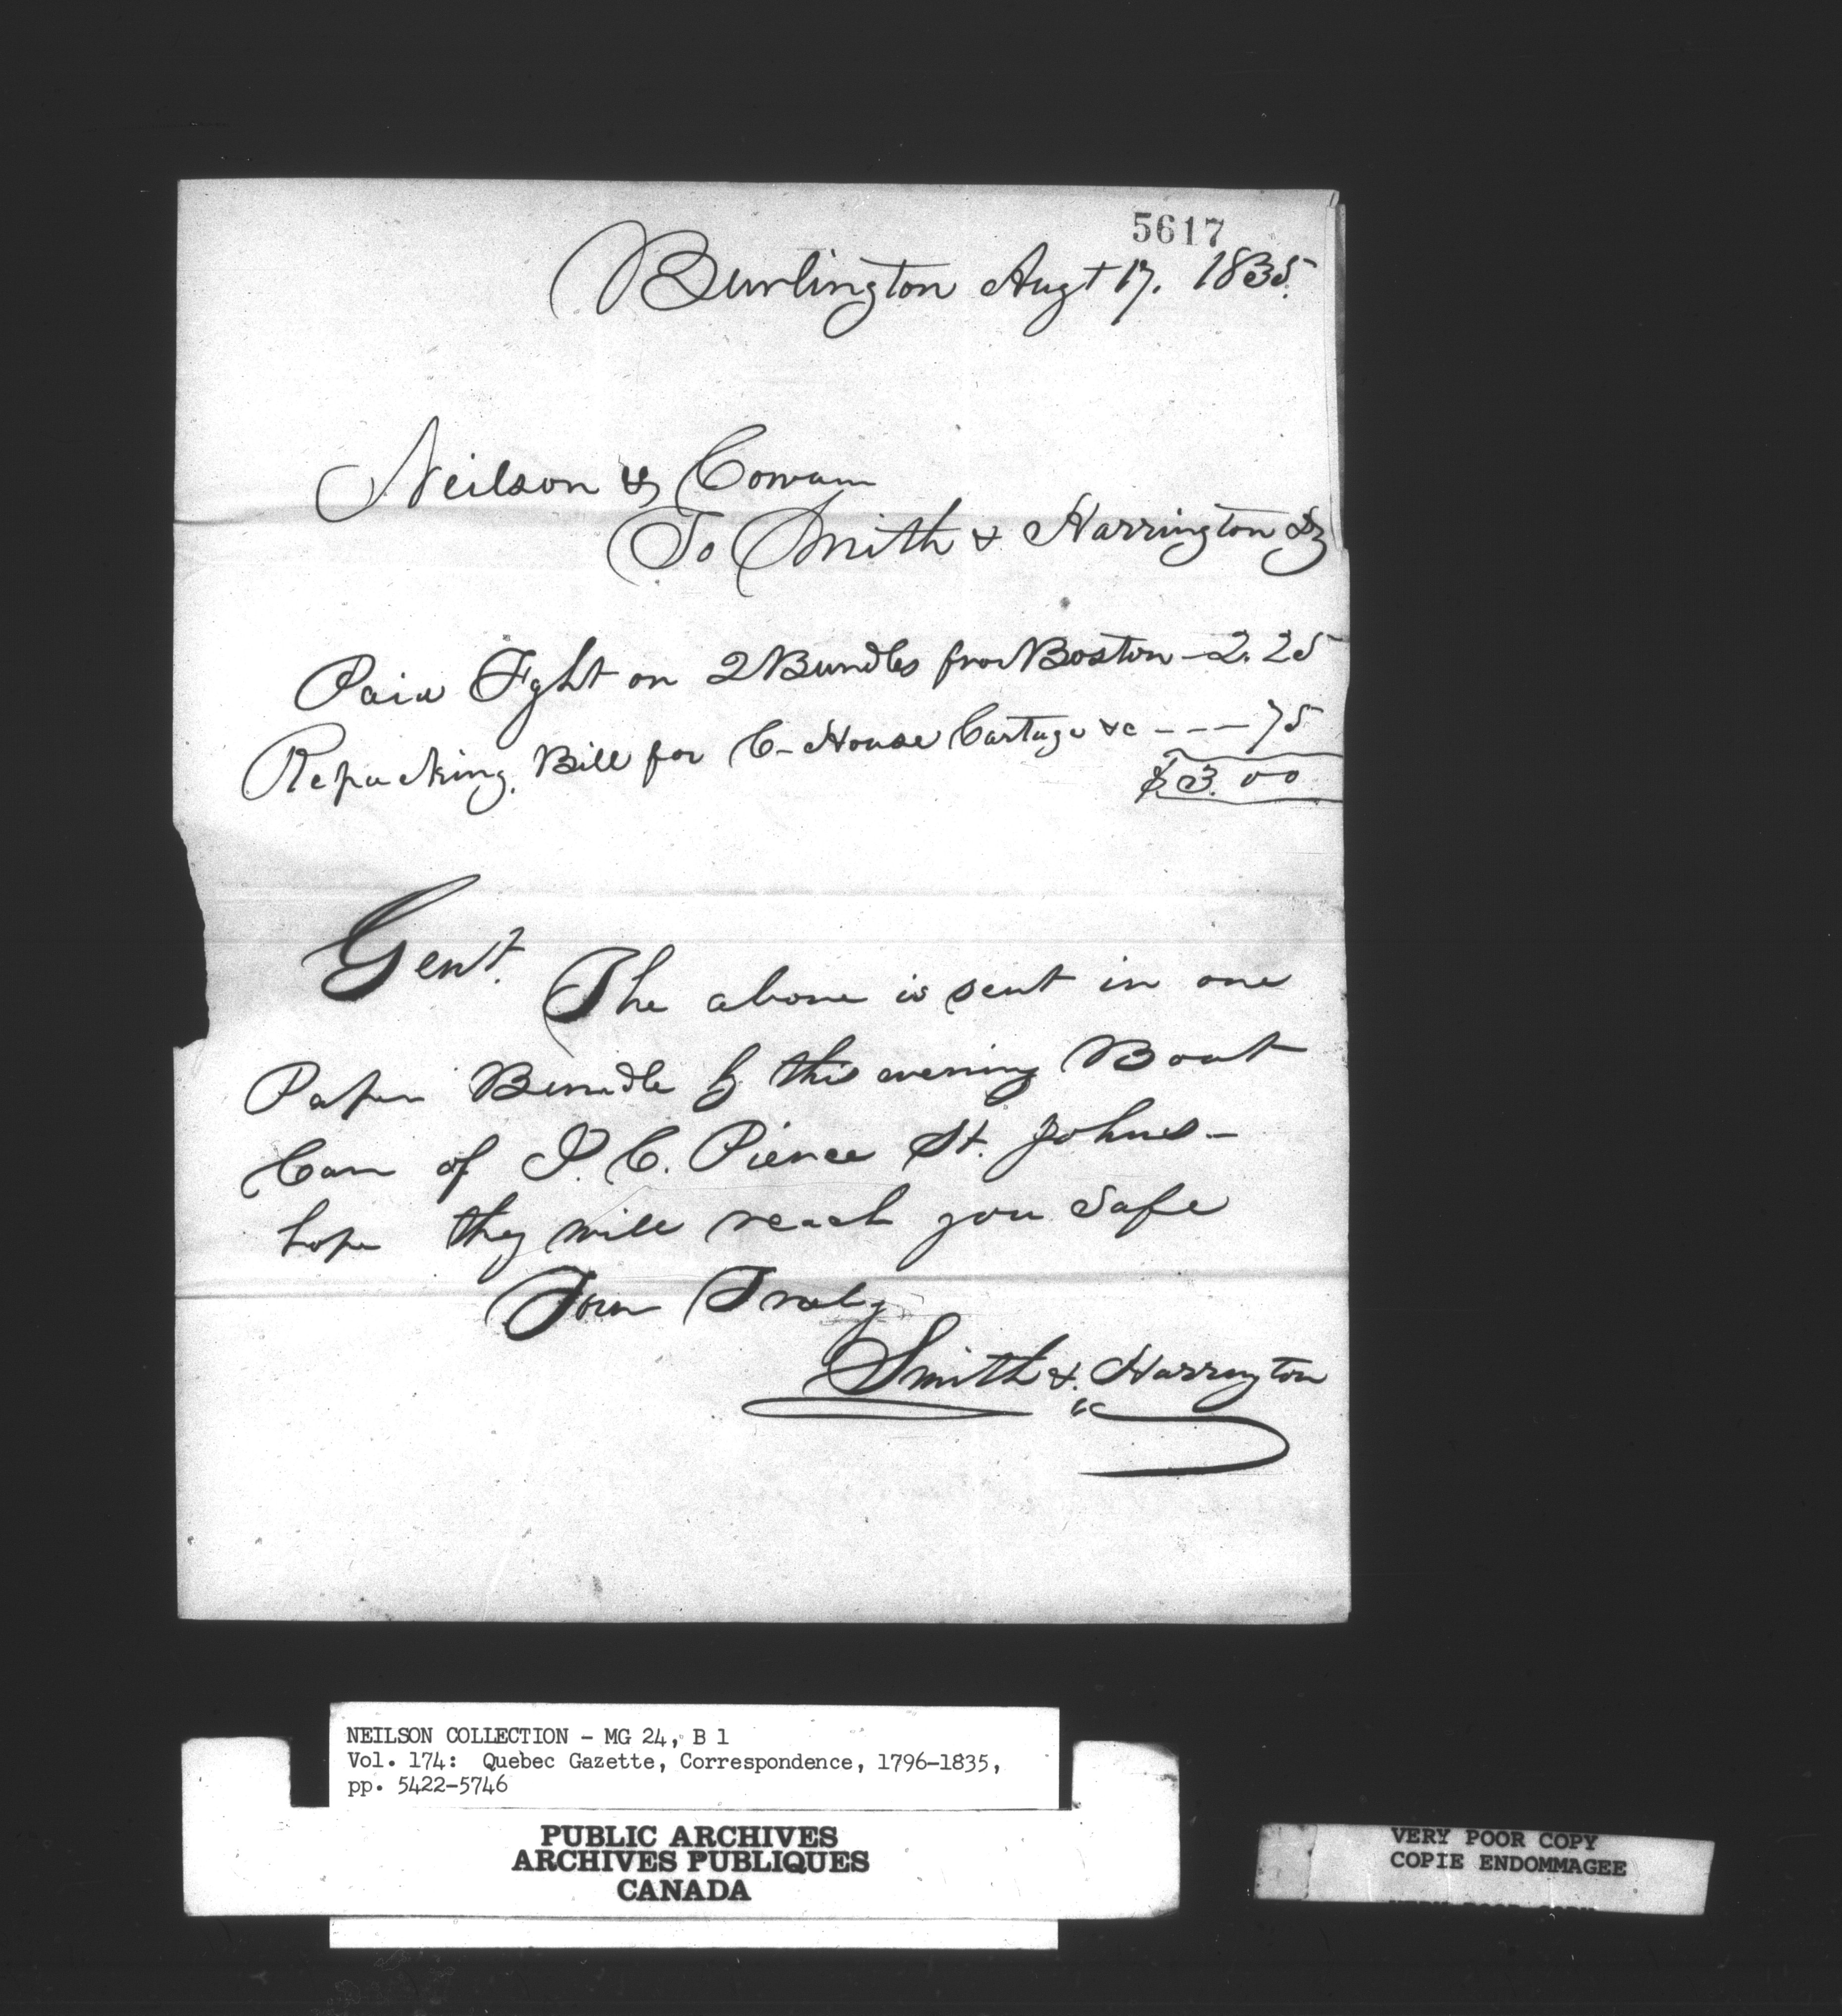 5617
Burlington Augt 17. 1835.
Neilson & Cowan
To Smith & Harrington Dr
Paid Fght on 2 Bundles from Boston - 2.25
Repacking, Bill for C-House Cartage &c - - - 75
$3.00
Gent. The above is sent in one
Paper Bundle by this evening Boat
Care of J. C. Pierce St. Johns -
hope they will reach you Safe
Your Truly
Smith & Harrington
NEILSON COLLECTION - MG 24, B 1
Vol. 174: Quebec Gazette, Correspondence, 1796-1835,
pp. 5422-5746
PUBLIC ARCHIVES
ARCHIVES PUBLIQUES
CANADA
VERY POOR COPY
COPIE ENDOMMAGEE